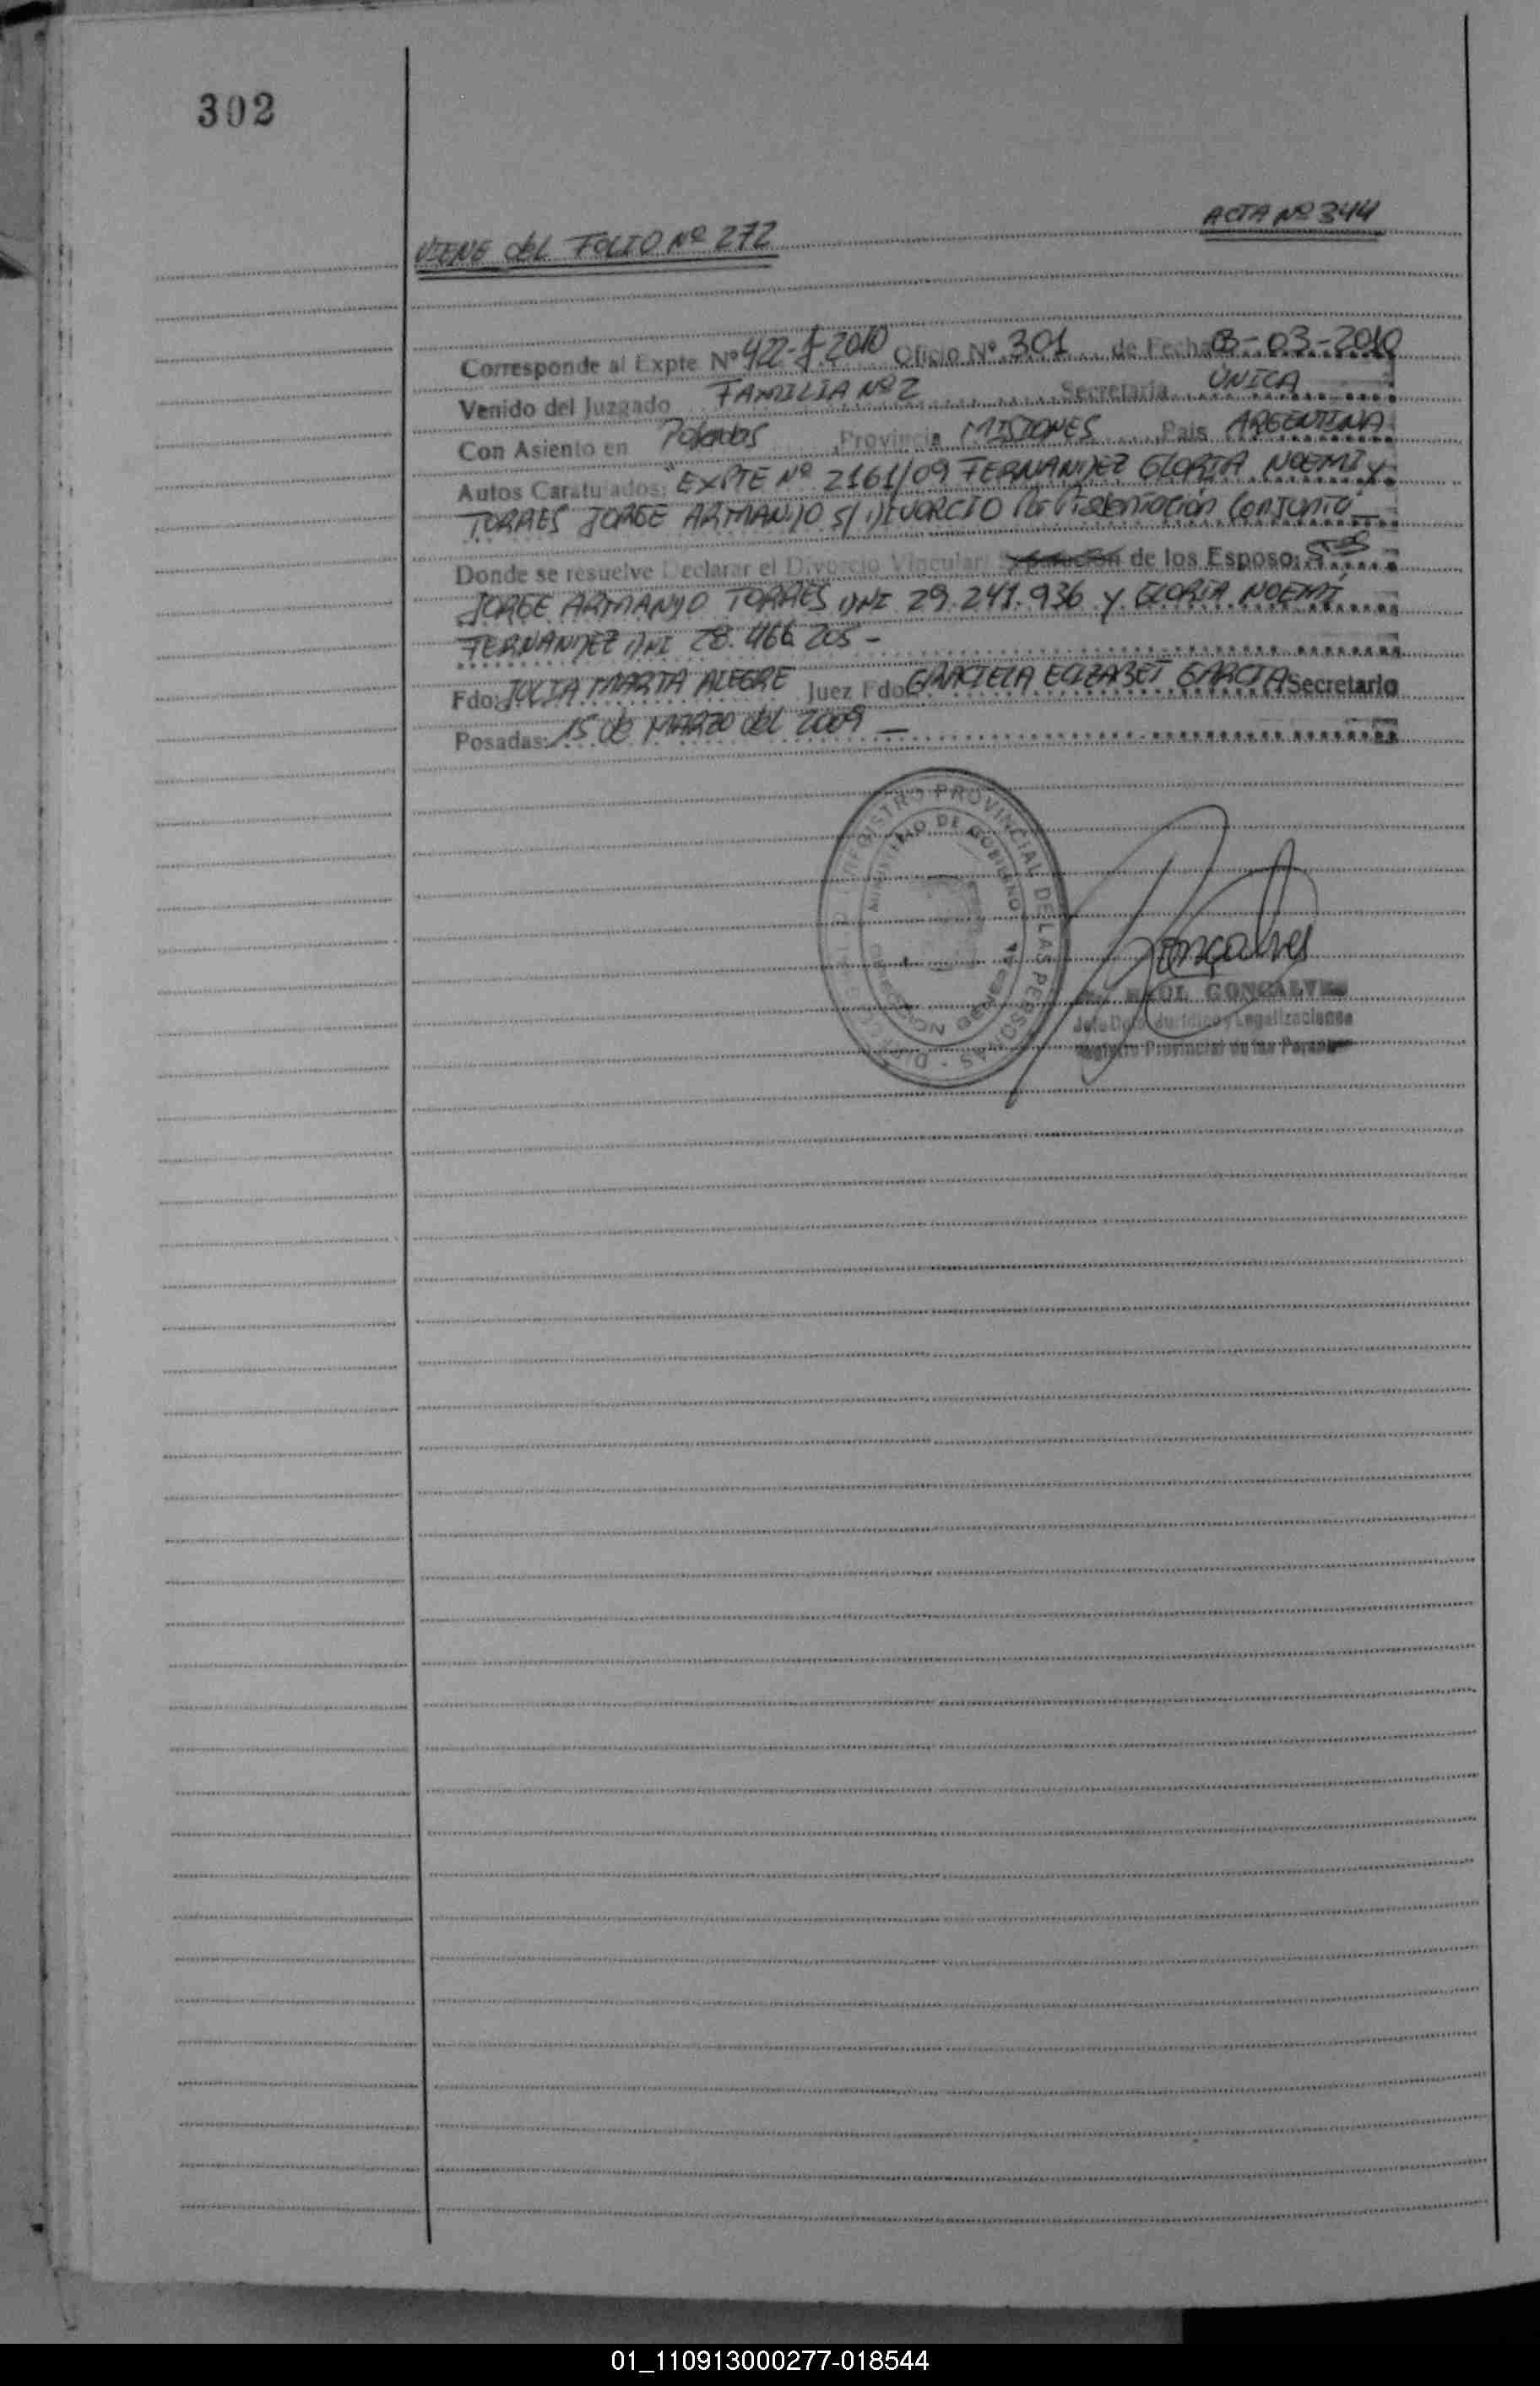 302
ACTA Nº 344
VIENE del FOLIO Nº 272
Corresponde al Expte Nº 422-J-2010 Oficio Nº 301 de Fecha 8-03-2010
Venido del Juzgado FAMILIA Nº 2 Secretaria UNICA
Con Asiento en Posadas Provincia MISIONES Pais ARGENTINA
Autos Caratulados: "EXPTE Nº 2161/09 FERNANDEZ GLORIA NOEMI y
TORRES JORGE ARMANDO S/ DIVORCIO Por Presentación Conjunta"
Donde se resuelve Declarar el Divorcio Vincular de los Esposo:
JORGE ARMANDO TORRES DNI 29.241.936 y GLORIA NOEMI
FERNANDEZ DNI 28.466.205 -
Fdo: JULIA MARTA ALEGRE Juez Fdo: GRACIELA ELIZABET GARCIA Secretario
Posadas: 15 de MARZO del 2009 -
REGISTRO PROVINCIAL DE LAS PERSONAS
MINISTERIO DE GOBIERNO
Gonçalves
RAUL GONCALVES
Jefe Dpto. Jurídico y Legalizaciones
Registro Provincial de las Personas
01_110913000277-018544